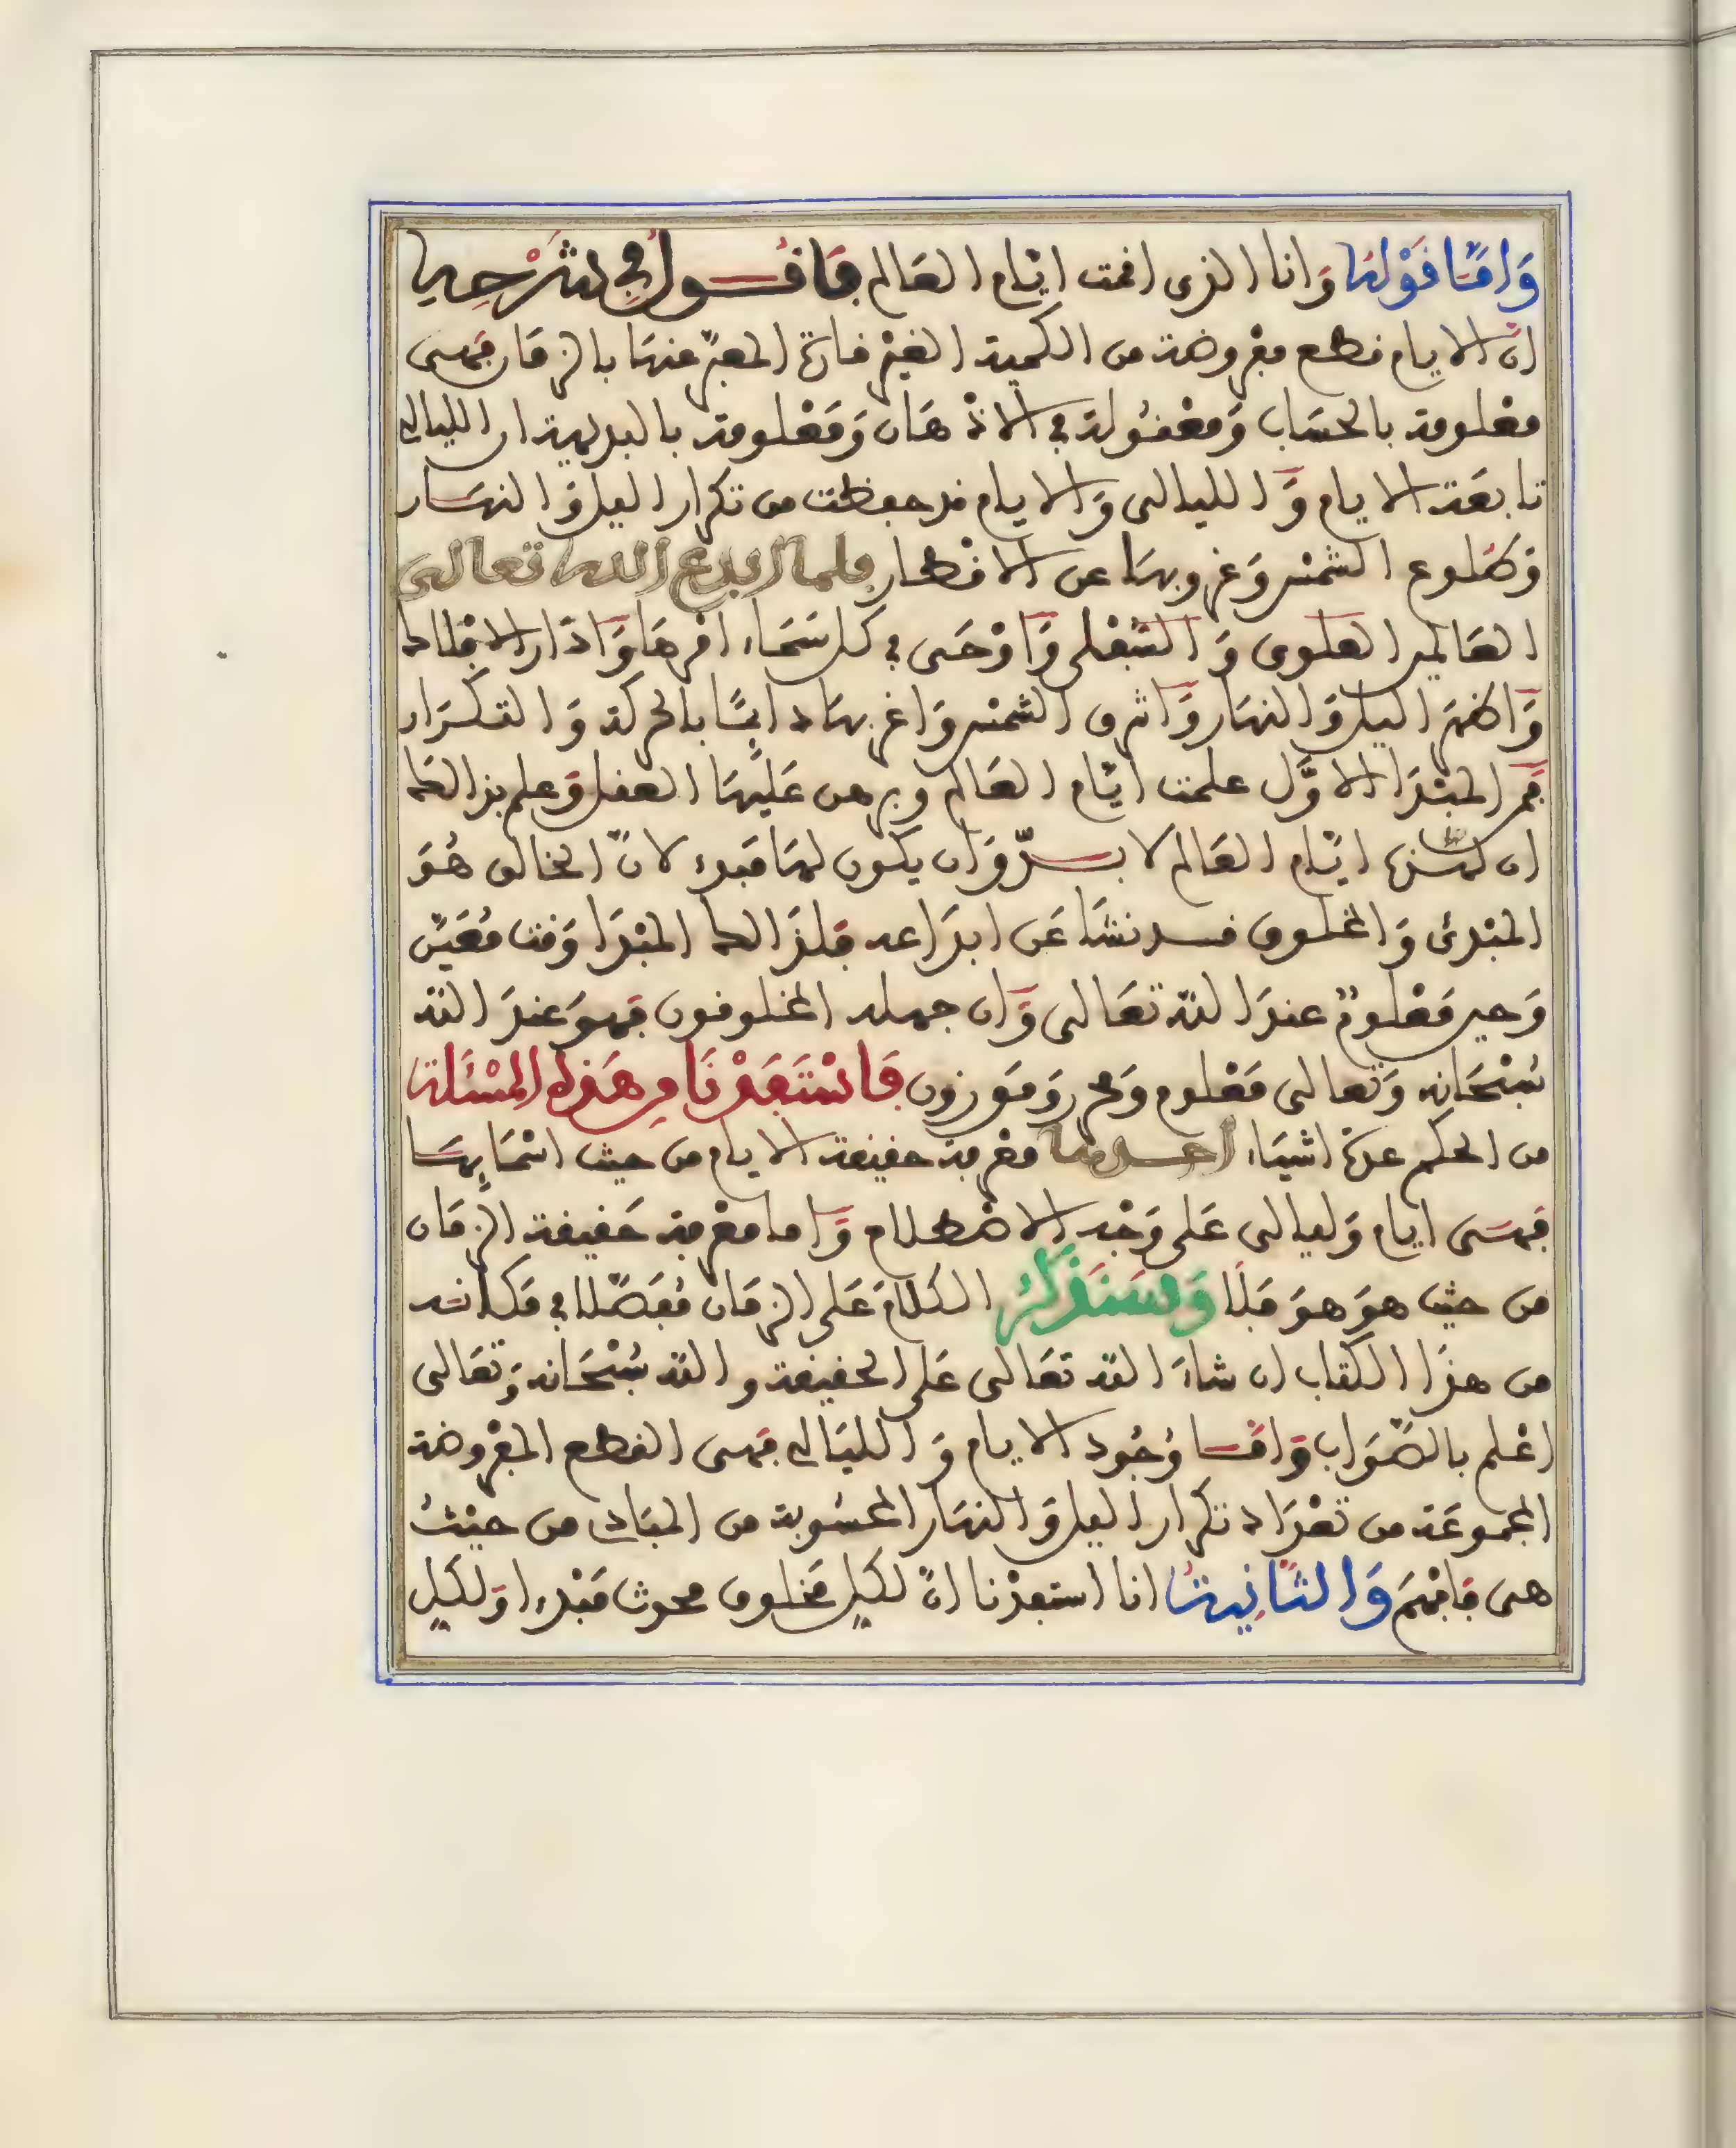 وَامَّا قَوْلُهُ وَانا الذى اقمت ايّام العَالم فَاقُـــول فِي شَرْحِه
انّ الايام قطع مفروضة من الكمية الغيْر قارة المعبّر عنهَا بالزمَان فهى
معْلومة بالحسَاب وَمعْقُولة في الاذْهَان وَمَعْلومة بالبديهية ان الليالي
تابعَة الايام وَالليالى وَالايام قد حفظت من تكرار اليل وَالنهَــار
وَطلوع الشمْس وَغروبهَا عن الاقطــار فلما ابدع الله تعالى
العَالمين العلوى وَالسّفْلى وَاوْحَى في كل سَمَاء امْرهَا وَادَار الافْلاك
وَاظهَر اليل وَالنهَار وَاشرق الشمْس وَاغربهَا دايمًا بالحركة وَالتكــرَار
فمن المبْتدَا الاوَّل علمت ايّام العَالم وبرهن عَليْهَا العقل وَعلم بذالك
ان لهــذه ايّام العَالم لا بــدّ وَان يكون لهَا مَبدء لانّ الخالق هُوَ
المبْدئ وَالمخلوق قــد نشَا عَن ابدَاعه فلذَالك المبْدَا وَقت مُعَيّن
وَحين مَعْلومٌ عندَ اللّه تعَالى وَان جهـله المخلوقون فهوَ عندَ اللّه
سُبْحَانه وَتعالى مَعْلوم وَمحرر وَمَوزون فَاسْتَفَدْنَا مِن هَذِهِ المَسْئَلة
من الحكم عدّة اشيَاء احــدها معْرفة حقيقة الايام من حيث اسْمَايِهَـــا
فهىَ ايام وَليالى عَلى وَجْه الاصْطلاح وَاما معْرفة حَقيقة الزمَان
من حيْث هوَ هوَ فَلَا وَسَنَذكُر الكلَام عَلى الزمَان مُفَصّلا في مَكانــه
من هذَا الكتاب ان شاءَ اللّه تعَالى عَلى الحقيقة واللّه سُبْحَانه وَتعَالى
اعْلم بالصّوَاب وَامّــا وُجُود الايام وَالليَالي فهى القطع المفْروضة
المجموعَة من تعْدَاد تكرار اليل وَالنهَار المحْسُوبة من المبَادى من حيْثُ
هى فَافْهَم وَالثَّانِيَة انا استفدْنا انّ لكل مخلوق محدث مَبْدءا وَلكل